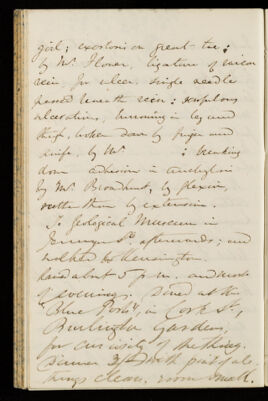 girl; exostosis on great toe:
by Mr. Flower, ligature of varicose
vein for ulcer, single needle
passed beneath vein: scrofulous
ulcerations, burrowing in leg and
thigh, broken down by finger and
knife, by Mr : breaking
down adhesion in anchylosis
by Mr. Broadhurst, by flexion,
rather than by extension.
To Geological Museum in
Jermyn St. afterwards; and
walked to Kensington.
about 5 p.m. and
of evening. Dined at the
"Blue Posts", in Cork St.,
Burlington Gardens,
for curiosity of the thing.
Dinner 3/- with pint of ale.
Things clean, room small.